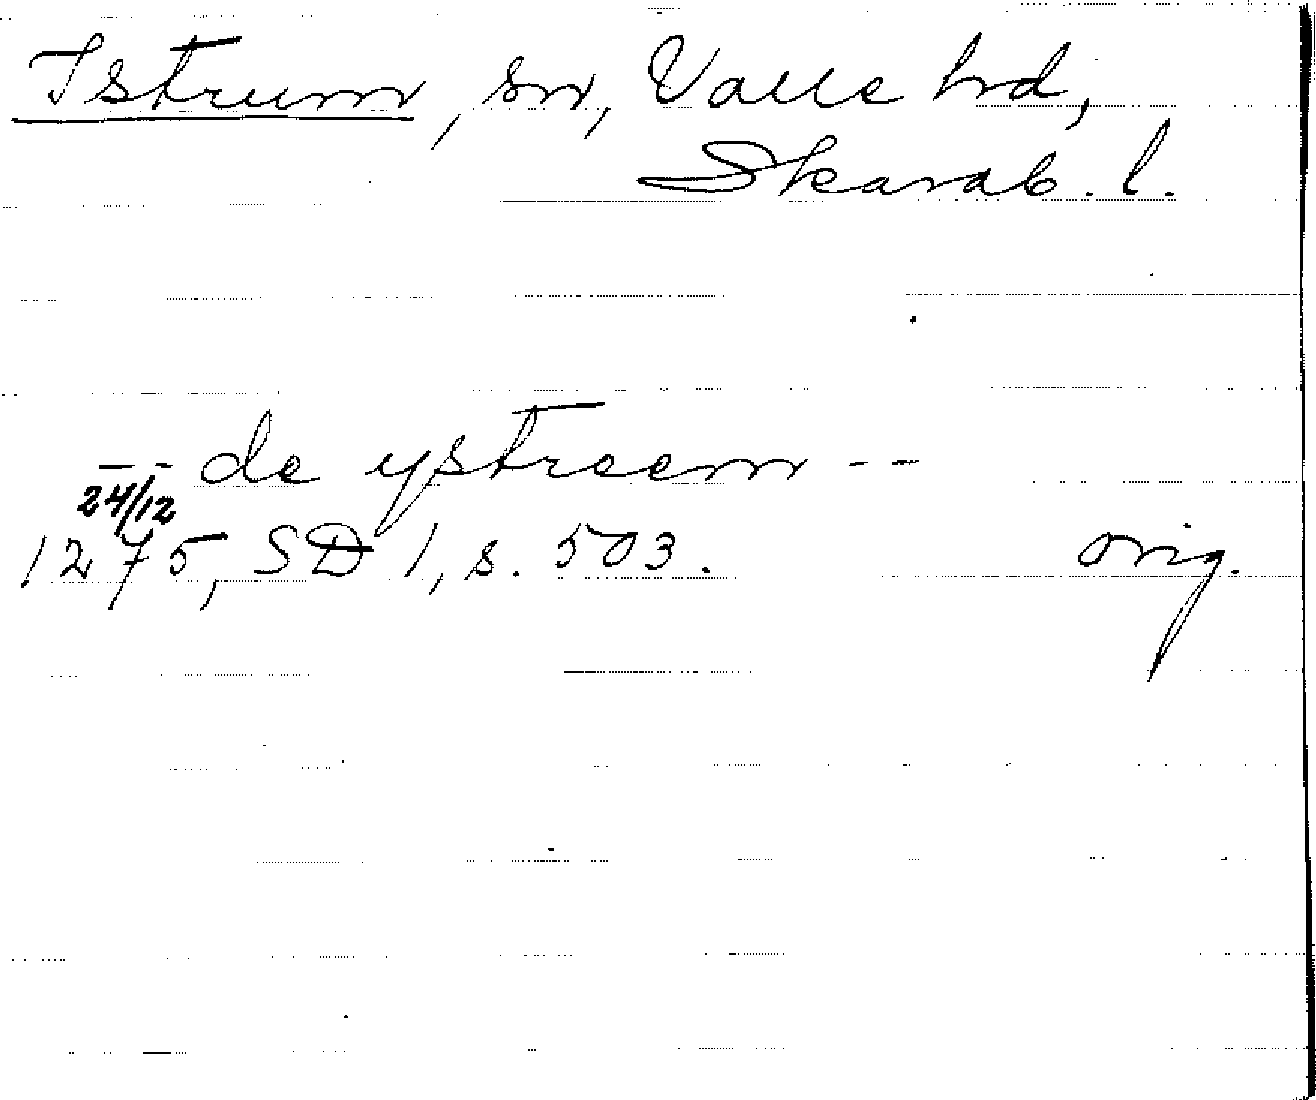 Istrum, sn, Valle hd,
Skarab. l.
-- de ystreem --
24/12
1275, SD 1, s. 503. orig.